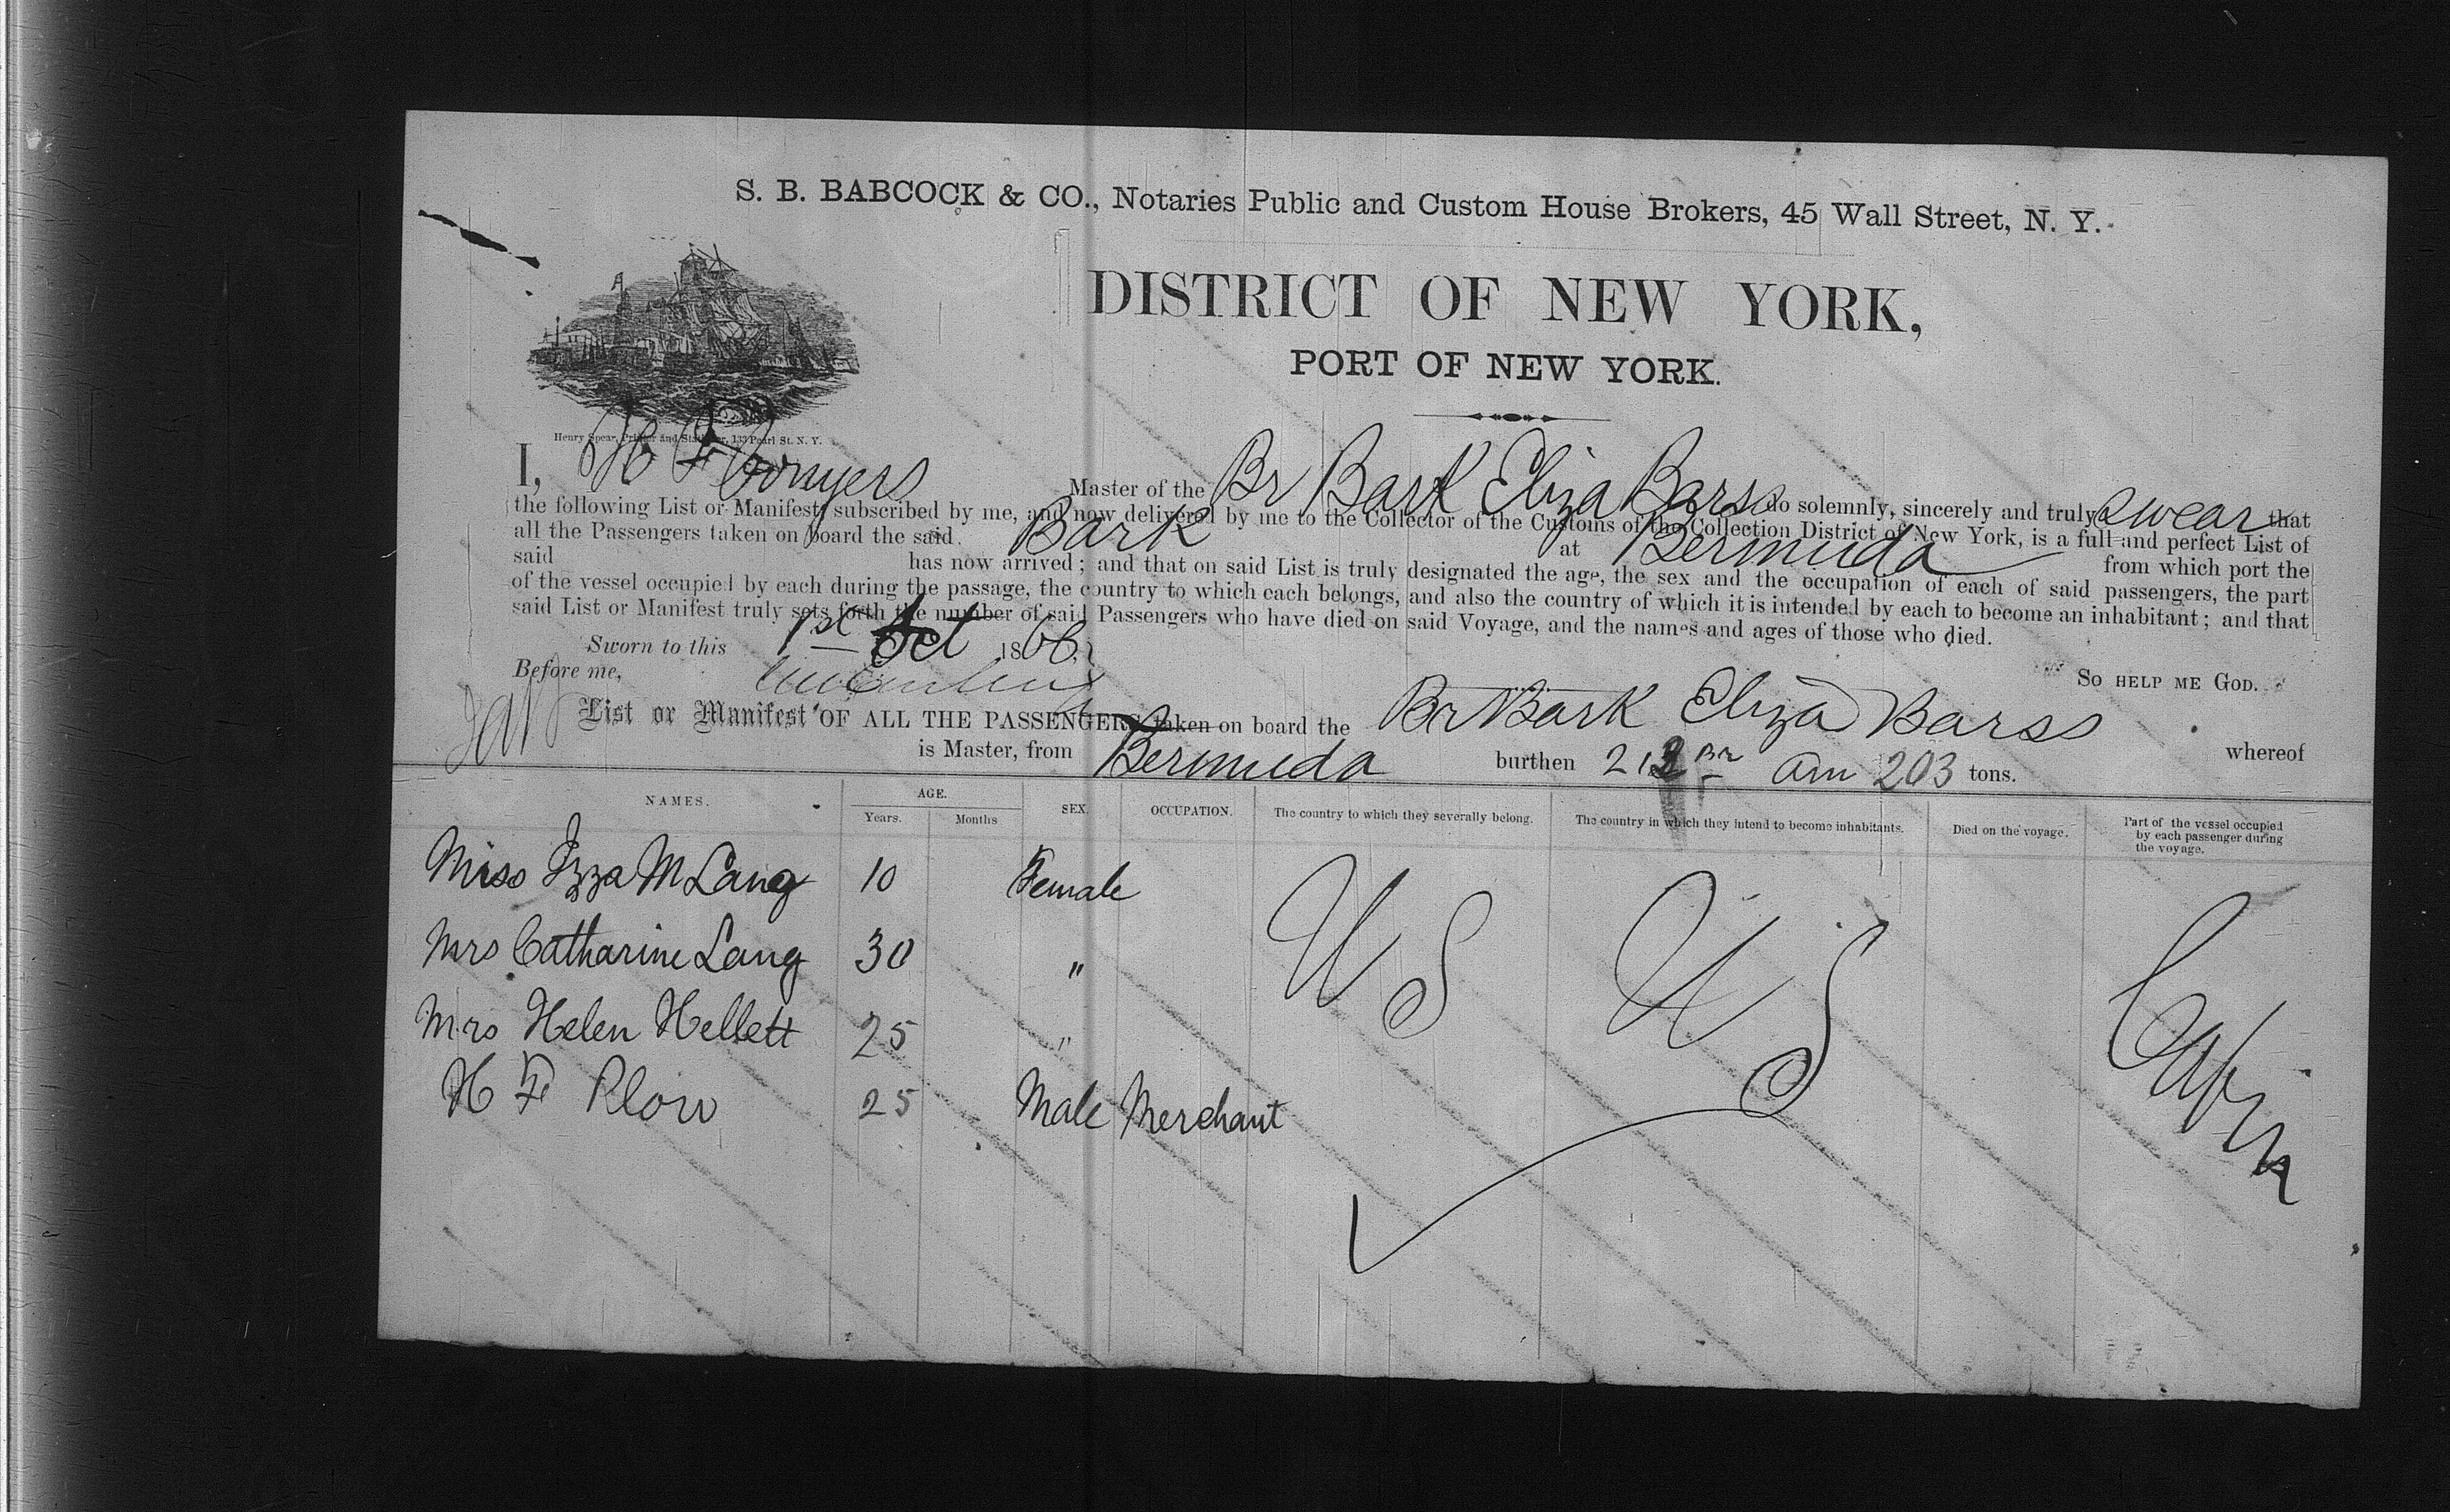 S. B. BABCOCK & CO., Notaries Public and Custom House Brokers, 45 Wall Street, N. Y.
DISTRICT OF NEW YORK,
PORT OF NEW YORK.
Henry Spear, Printer and Stationer, 133 Pearl St. N. Y.
I, Master of the Br Bark Eliza Barss do solemnly, sincerely and truly swear that
the following List or Manifest, subscribed by me, and now delivered by me to the Collector of the Customs of the Collection District of New York, is a full and perfect List of
all the Passengers taken on board the said Bark at Bermuda from which port the
said has now arrived; and that on said List is truly designated the age, the sex and the occupation of each of said passengers, the part
of the vessel occupied by each during the passage, the country to which each belongs, and also the country of which it is intended by each to become an inhabitant; and that
said List or Manifest truly sets forth the number of said Passengers who have died on said Voyage, and the names and ages of those who died.
Sworn to this 1st Oct 1866
So HELP ME GOD.
Before me,
List or Manifest OF ALL THE PASSENGERS taken on board the Br Bark Eliza Barss whereof
is Master, from Bermuda burthen 212 Br Am 203 tons.
NAMES. AGE. SEX. OCCUPATION. The country to which they severally belong. The country in which they intend to become inhabitants. Died on the voyage. Part of the vessel occupied by each passenger during the voyage.
Years. Months
Miss Izza M Lang 10 Female U S U S Cabin
Mrs Catharine Lang 30 "
Mrs Helen Hellett 25 "
H F Plow 25 Male Merchant